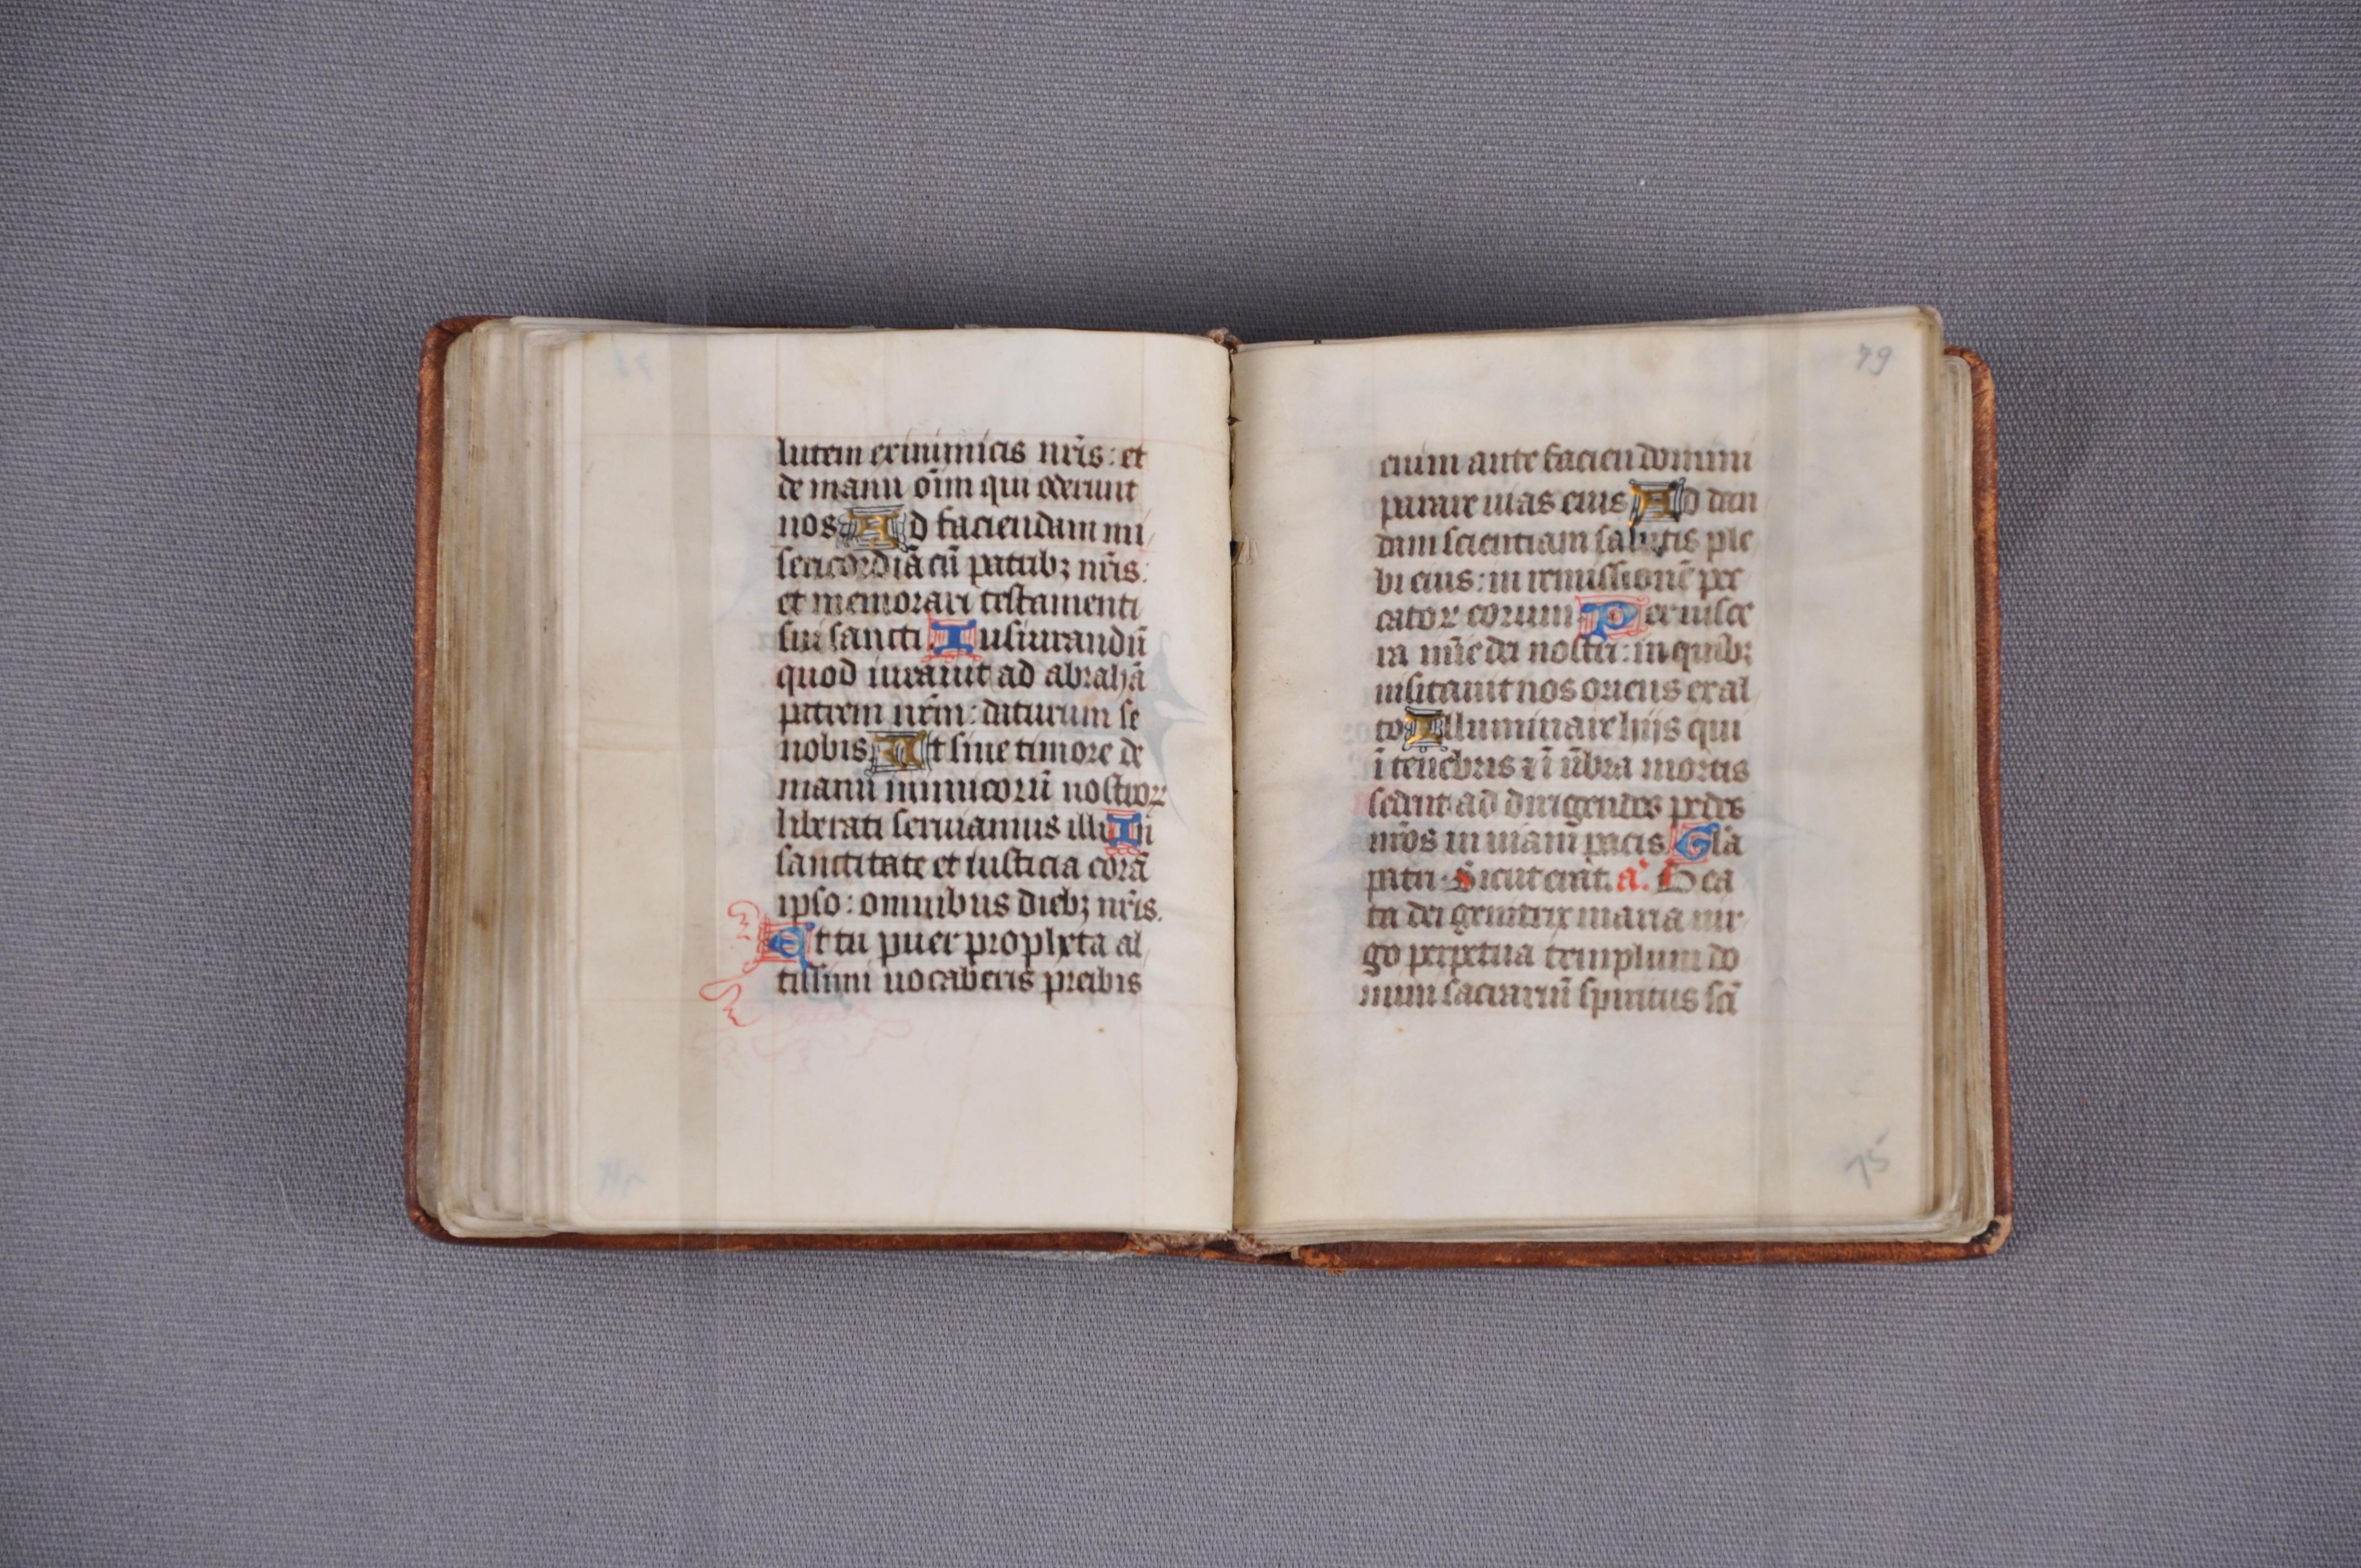 lutem ex inimicis nr̃is: et
de manu oĩm qui oderunt
nos Ad faciendam mi
sericordiã cũ patribꝫ nr̃is:
et memorari testamenti
sui sancti Iusiurandũ
quod iurauit ad abrahã
patrem nrm̃: daturum se
nobis Ut sine timore de
manu inimicorũ nostroꝝ
liberati seruiamus illi In
sanctitate et iusticia corã
ipso: omnibus diebꝫ nr̃is.
Et tu puer propheta al
tissimi uocaberis preibis
79
enim ante faciem domini
parare uias eius Ad dan
dam scientiam salutis ple
bi eius: in remissionẽ pec
catoꝝ eorum Per uisce
ra mĩe dei nostri: in quibꝫ
uisitauit nos oriens ex al
to Illuminare hijs qui
ĩ tenebris ⁊ ĩ ũbra mortis
sedent ad dirigendos pedes
nr̃os in uiam pacis Glã
patri Sicut erat. a. Bea
ta dei genitrix maria uir
go perpetua templum do
mini sacrariũ spiritus scĩ
75